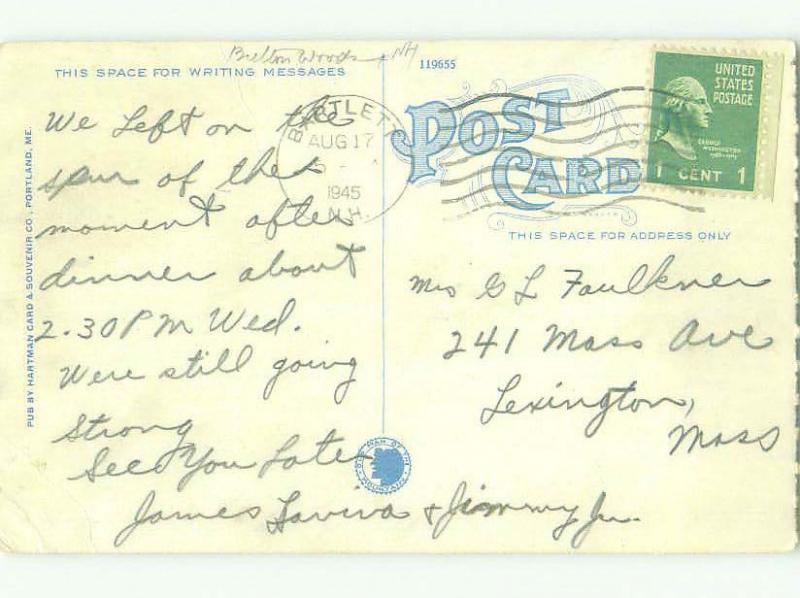 Bretton Woods NH
THIS SPACE FOR WRITING MESSAGES
119655
POST
CARD
BARTLETT
AUG 17
1945
N.H.
UNITED
STATES
POSTAGE
GEORGE
WASHINGTON
1 CENT 1
THIS SPACE FOR ADDRESS ONLY
PUB BY HARTMAN CARD & SOUVENIR CO., PORTLAND, ME.
We Left on the
spur of the
moment after
dinner about
2.30 PM Wed.
Were still going
Strong
See You Later
James Lavina & Jimmy Jr.
Mrs G L Faulkner
241 Mass Ave
Lexington,
Mass
OLD MAN OF THE MOUNTAIN